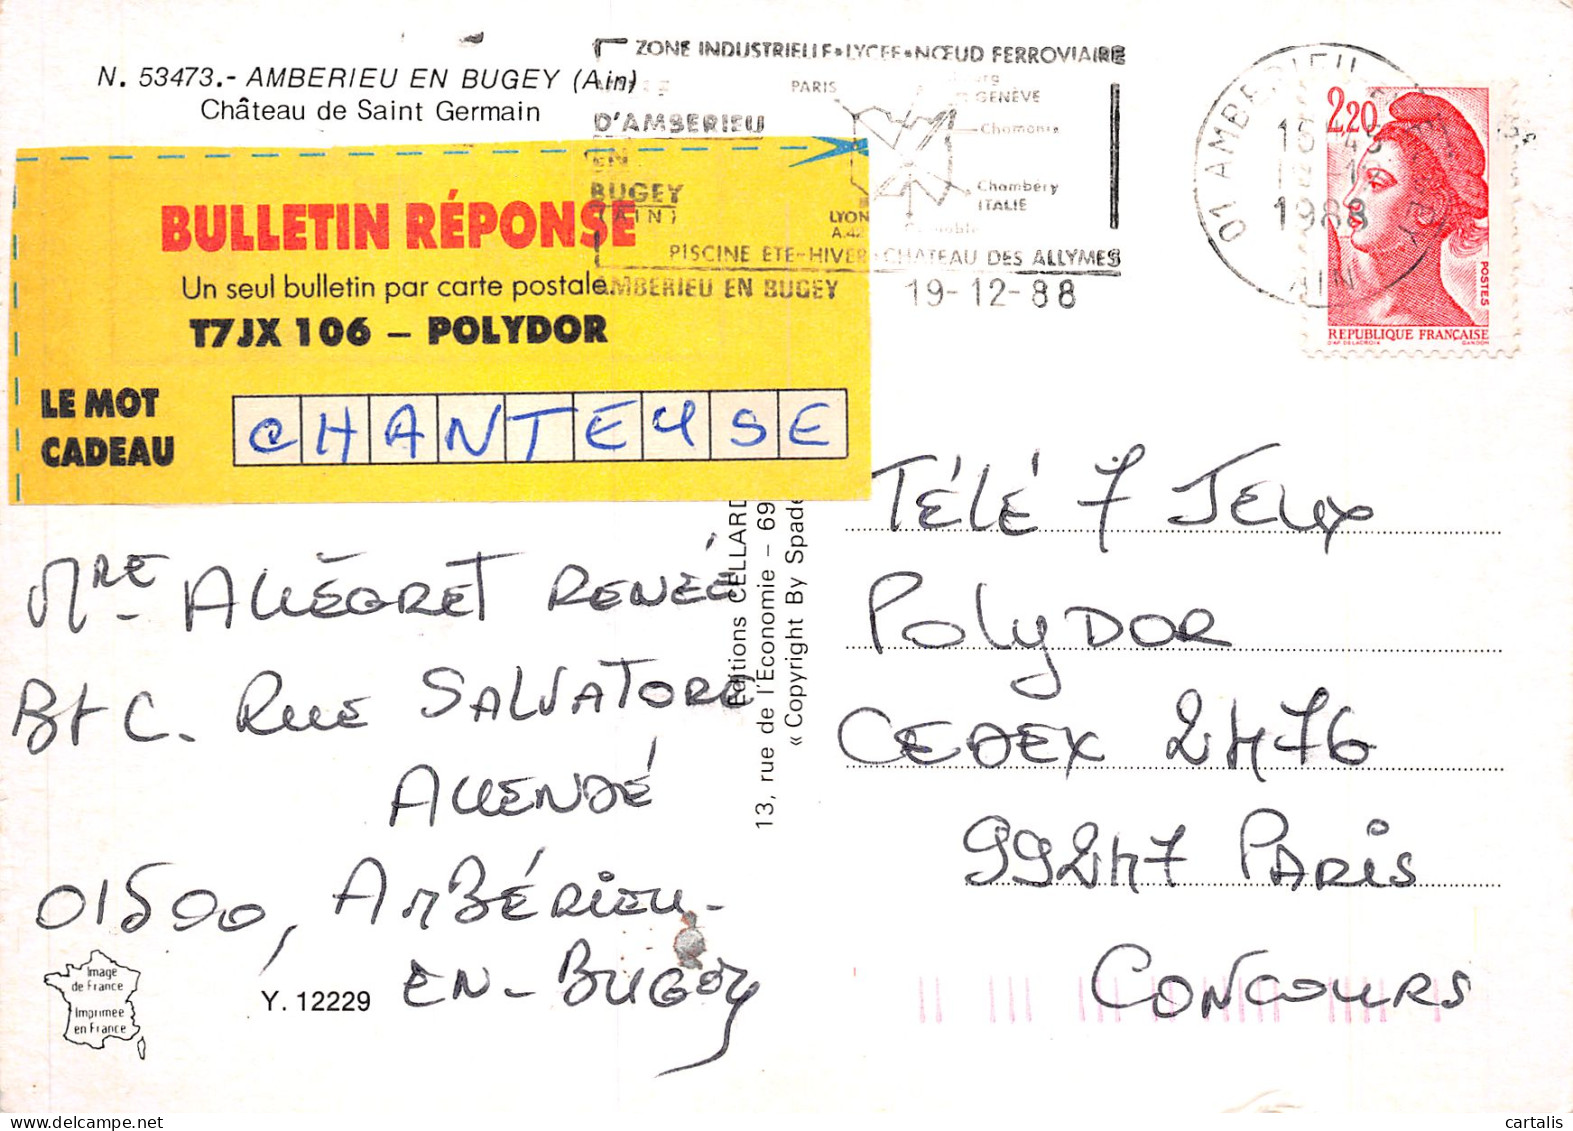 N. 53473.- AMBERIEU EN BUGEY (Ain)
Château de Saint Germain
ZONE INDUSTRIELLE•LYCEE•NŒUD FERROVIAIRE
D'AMBERIEU
EN
BUGEY
(AIN)
PARIS
GENÈVE
Chamonix
Chambéry
ITALIE
LYON
A.42
Grenoble
PISCINE ETE-HIVER•CHATEAU DES ALLYMES
AMBERIEU EN BUGEY
19-12-88
01 AMBERIEU EN BUGEY
1988
AIN
2,20
POSTES
REPUBLIQUE FRANÇAISE
D'AP. DELACROIX GANDON
BULLETIN RÉPONSE
Un seul bulletin par carte postale
T7JX 106 – POLYDOR
LE MOT
CADEAU
CHANTEUSE
Mme ALLÉGRET RENÉE
Bt C. RUE SALVATORE
ALLENDÉ
01500, AMBÉRIEU-
EN-BUGEY
Image
de France
Imprimée
en France
Y. 12229
Editions CELLARD
13, rue de l'Economie – 69
« Copyright By Spade
TÉLÉ 7 JEUX
POLYDOR
CEDEX 2476
99247 PARIS
CONCOURS
cartalis